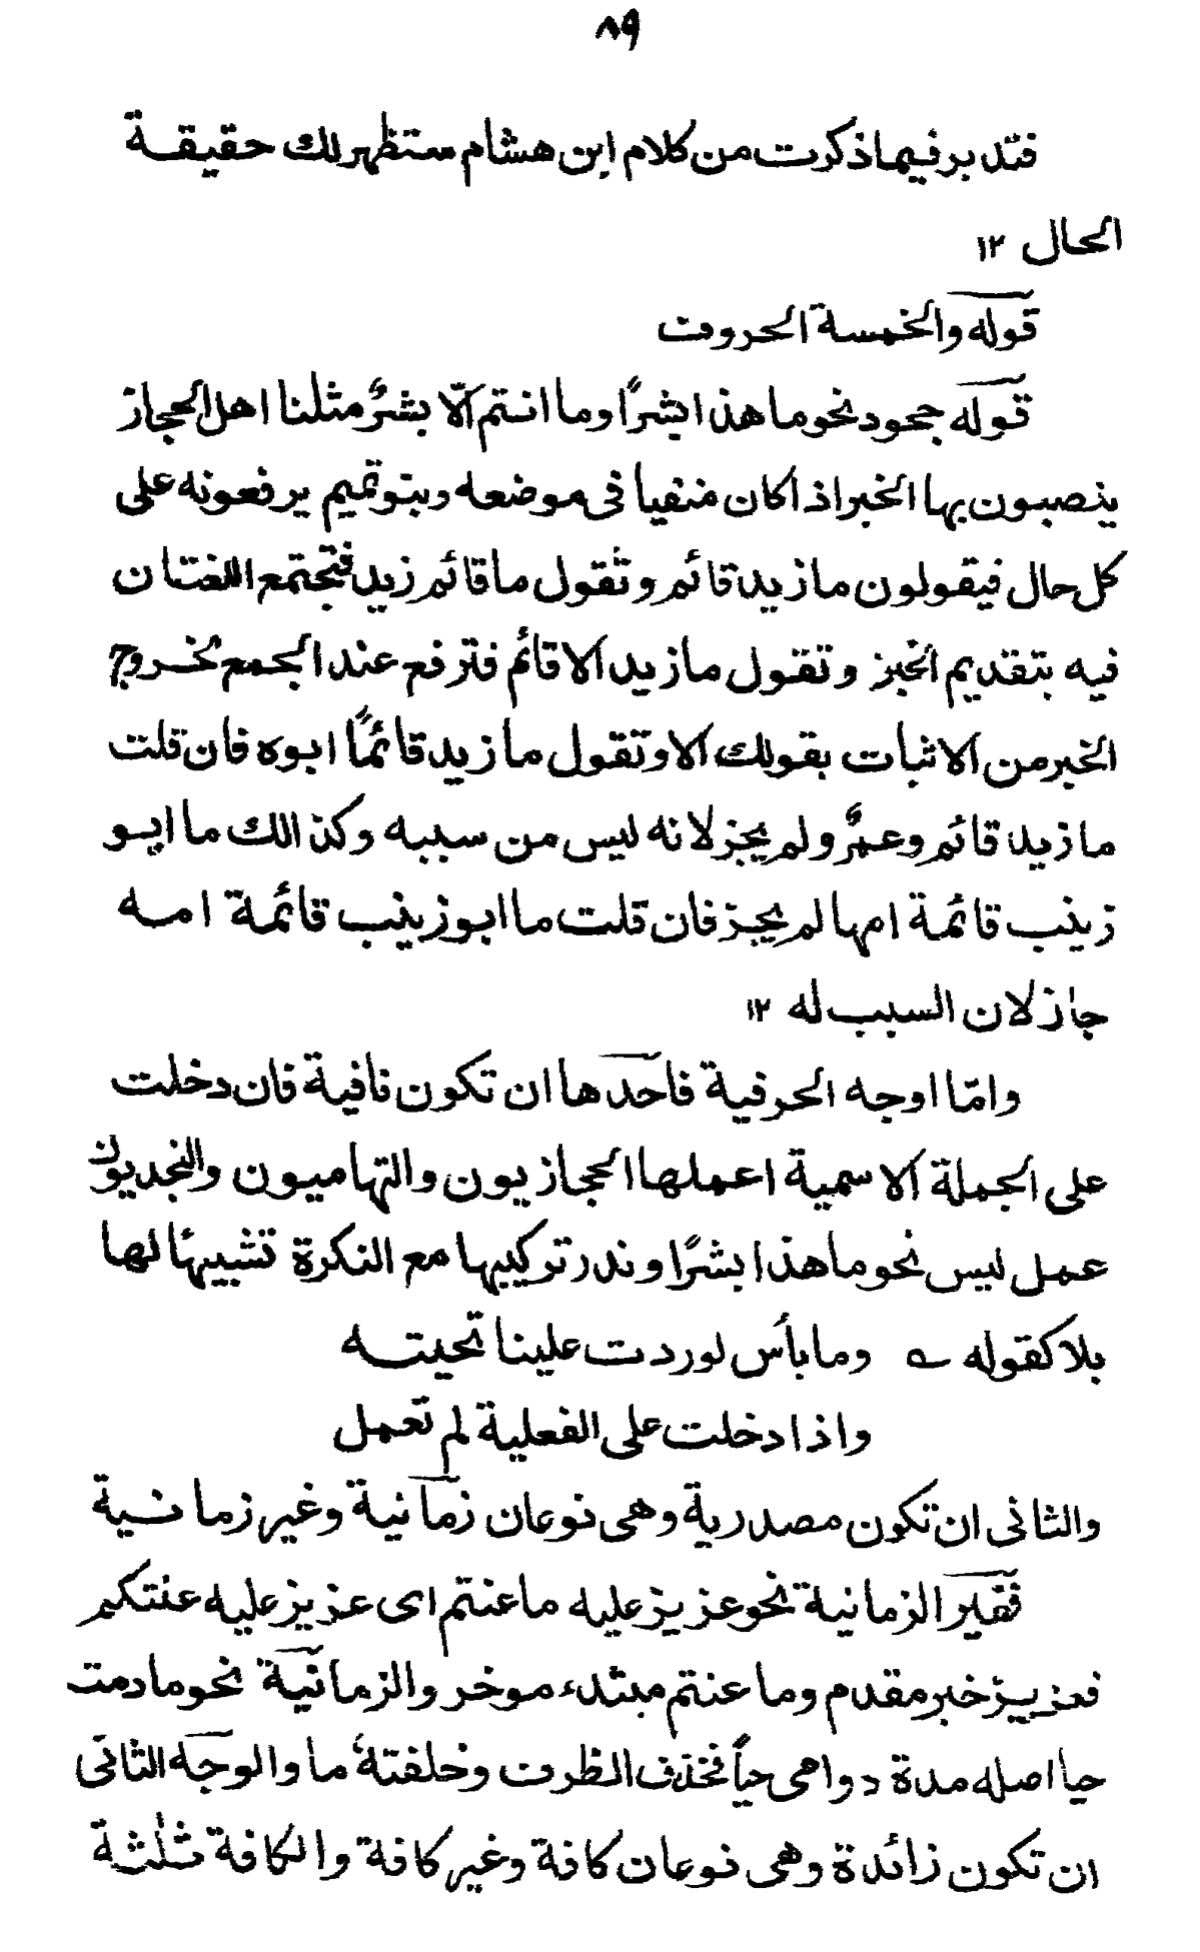 ٨٩
فتدبر فيما ذكرت من كلام ابن هشام ستظهر لك حقيقة
الحال ١٢
قوله والخمسة الحروف
قوله جحود نحو ما هذا بشرًا وما انتم الّا بشرٌ مثلنا اهل الحجاز
ينصبون بها الخبر اذا كان منفيا فى موضعه وبنو تميم يرفعونه على
كل حال فيقولون ما زيد قائم وتقول ما قائم زيد فتجتمع اللغتان
فيه بتقديم الخبر وتقول ما زيد الا قائم فترفع عند الجمع لخروج
الخبر من الاثبات بقولك الا وتقول ما زيد قائمًا ابوه فان قلت
ما زيد قائم وعمرٌو لم يجز لانه ليس من سببه وكذالك ما ابو
زينب قائمة امها لم يجز فان قلت ما ابو زينب قائمة امه
جاز لان السبب له ١٢
وامّا اوجه الحرفية فاحدها ان تكون نافية فان دخلت
على الجملة الاسمية اعملها الحجازيون والتهاميون والنجديون
عمل ليس نحو ما هذا بشرًا وندر تركيبها مع النكرة تشبيهًا لها
بلا كقوله ؎ وما بأس لو ردت علينا تحيته
واذا دخلت على الفعلية لم تعمل
والثانى ان تكون مصدرية وهى نوعان زمانية وغير زمانسية
فغير الزمانية نحو عزيز عليه ما عنتم اى عزيز عليه عنتكم
فعزيز خبر مقدم وما عنتم مبتدء موخر والزمانية نحو ما دمت
حيا اصله مدة دوامى حياً فحذف الظرف وخلفته ما والوجه الثانى
ان تكون زائدة وهى نوعان كافة وغير كافة والكافة ثلٰثة